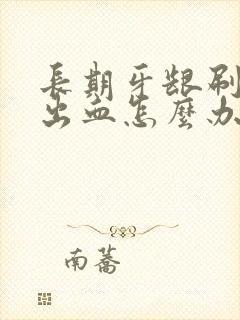 長期牙龈刷
出血怎麼办
南蕎